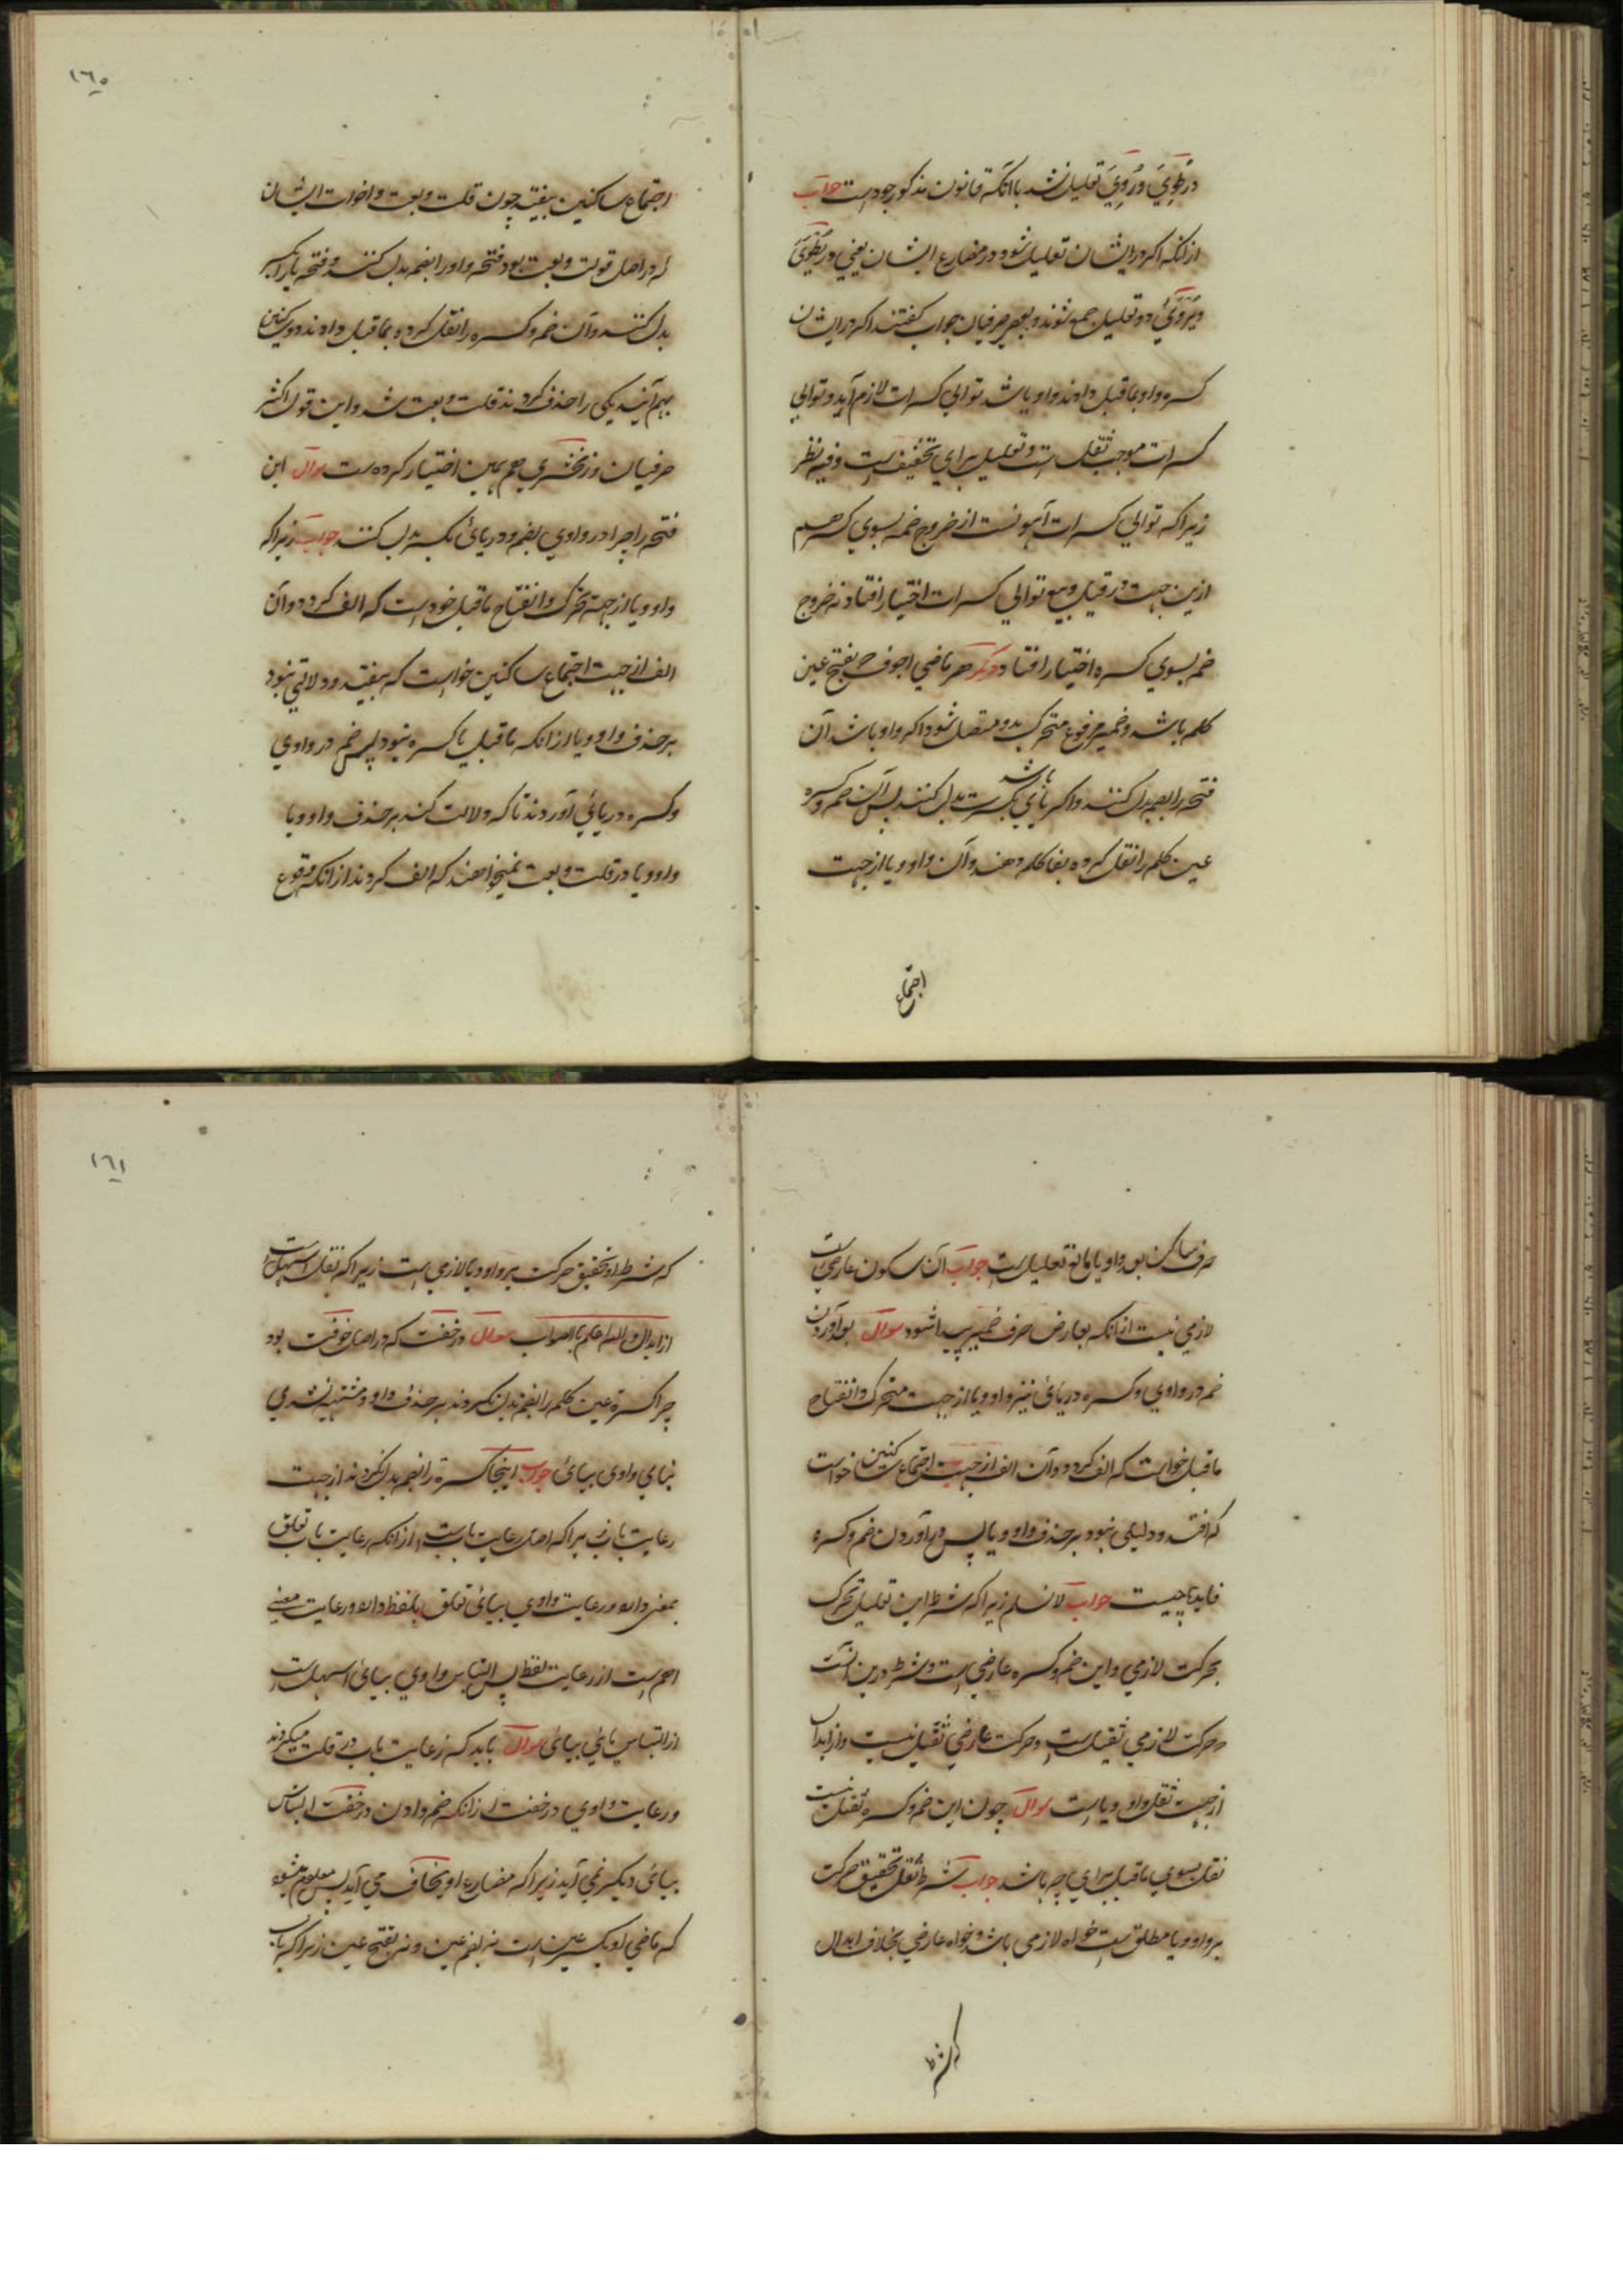 در طَوِيَ و رَوِيَ تعلیل نشد با آنکه قانون مذکور موجودست جواب
ازانکه اکر در ایشان تعلیل شود در مضارع ایشان یعنی در یَطْوِيُ
و یَرْوَيُ دو تعلیل جمع شوند و بعضی صرفیان جواب کفتند اکر در ایشان
کسره واو بماقبل دادند واو یا شد توالي کسرات لازم آید و توالي
کسرات موجب ثقل است و تعلیل برای تخفیف است و فیه نظر
زیرا که توالي کسرات آهونست از خروج ضمه بسوي کسره هم
ازین جهت در قیل و بیع توالي کسرات اختیار افتاد نه خروج
ضم بسوي کسره اختیار افتاد هر ماضي اجوف که بفتح عین
کلمه باشد و ضمیر مرفوع متحرک بدو متصل شود اکر واو باشد آن
فتحه را بضم بدل کنند و اکر یائي باشد بکسرت بدل کنند پس آن ضم و کسره
عین کلمه را نقل کرده بفا کلمه دهند و آن واو و یا از جهت
اجتماع
١٦٠
اجتماع ساکنین بیفتد چون قلت و بعت و اخوات ایشان
که در اصل قولت و بیعت بود فتحه واو را بضم بدل کنند و فتحه یا را بکسر
بدل کنند و آن ضم و کسره را نقل کرده بماقبل دادند دو ساکنین
بهم آیند یکی را حذف کردند قلت و بعت شد و این قول اکثر
صرفیان و زمخشري هم همین اختیار کرده ست سوال این
فتحه را چرا در واوي بضم و در یائ بکسر بدل کنند جواب زیرا که
واو و یا از جهة تحرک و انفتاح ماقبل خودست که الف کردد و آن
الف از جهت اجتماع ساکنین خواست که بیفتد و دلالتي نبود
بر حذف واو و یا ازانکه ماقبل یا کسره نبود پس ضم در واوي
و کسره در یائي آوردند تا که دلالت کند بر حذف واو و یا
واو و یا در قلت و بعت نمیخواهند که الف کردند ازانکه وقوع
حرف ساکن بعد واو یا مانع تعلیل ست جواب آن سکون عارضي ست
لازمي نیست ازانکه بعارض حرف ضمیر پیدا شود سوال بعد آوردن
ضم در واوي و کسره در یائ نیز واو و یا از جهت متحرک و انفتاح
ماقبل خواست که الف کردد و آن الف از جهت اجتماع ساکنین خواست
که افتد و دلیلی نبود بر حذف واو و یا پس در آوردن ضم و کسره
فایده چیست جواب لانسلم زیرا که شرط این تعلیل تحرک
بحرکت لازمي و این ضم و کسره عارضي است و شرط درین آنست
و حرکت لازمي ثقیل ست و حرکت عارضي ثقیل نیست و ابدال
از جهت ثقل واو و یا است سوال چون این ضم و کسره ثقیل نیست
نقل بسوي ماقبل براي چه باشد جواب شرط نقل تحقیق حرکت
بر واو و یا مطلق ست خواه لازمي باشد و خواه عارضي بخلاف ابدال
که شرط
١٦١
که شرط او تحقیق حرکت بر واو و یا لازمي است زیرا که نقل اسهل ست
از ابدال والله اعلم بالصواب سوال در خفت که در اصل خوفت بود
چرا کسره عین کلمه را بضم بدل نکردند بر حذف واو و مشتبه نشدي
بناي واوی بیائ جواب اینجا کسره را بضم بدل نکردند از جهت
رعایت باب زیرا که اصل رعایت باب ست ازانکه رعایت باب تعلق
بمعنی دارد و رعایت واوي بیائ تعلق بلفظ دارد و رعایت معنی
اهم ست از رعایت لفظ پس التباس واوي بیائ اسهل ست
از التباس بابي ببابي سوال باید که رعایت باب در قلت میکردند
و رعایت واوي در خفت ازانکه ضم دادن در خفت التباس
ببابي دیکر نمي آید زیرا که مضارع او یخاف مي آید پس معلوم میشود
که ماضي او بکسر عین است نه بضم عین و نه بفتح عین زیرا که باب